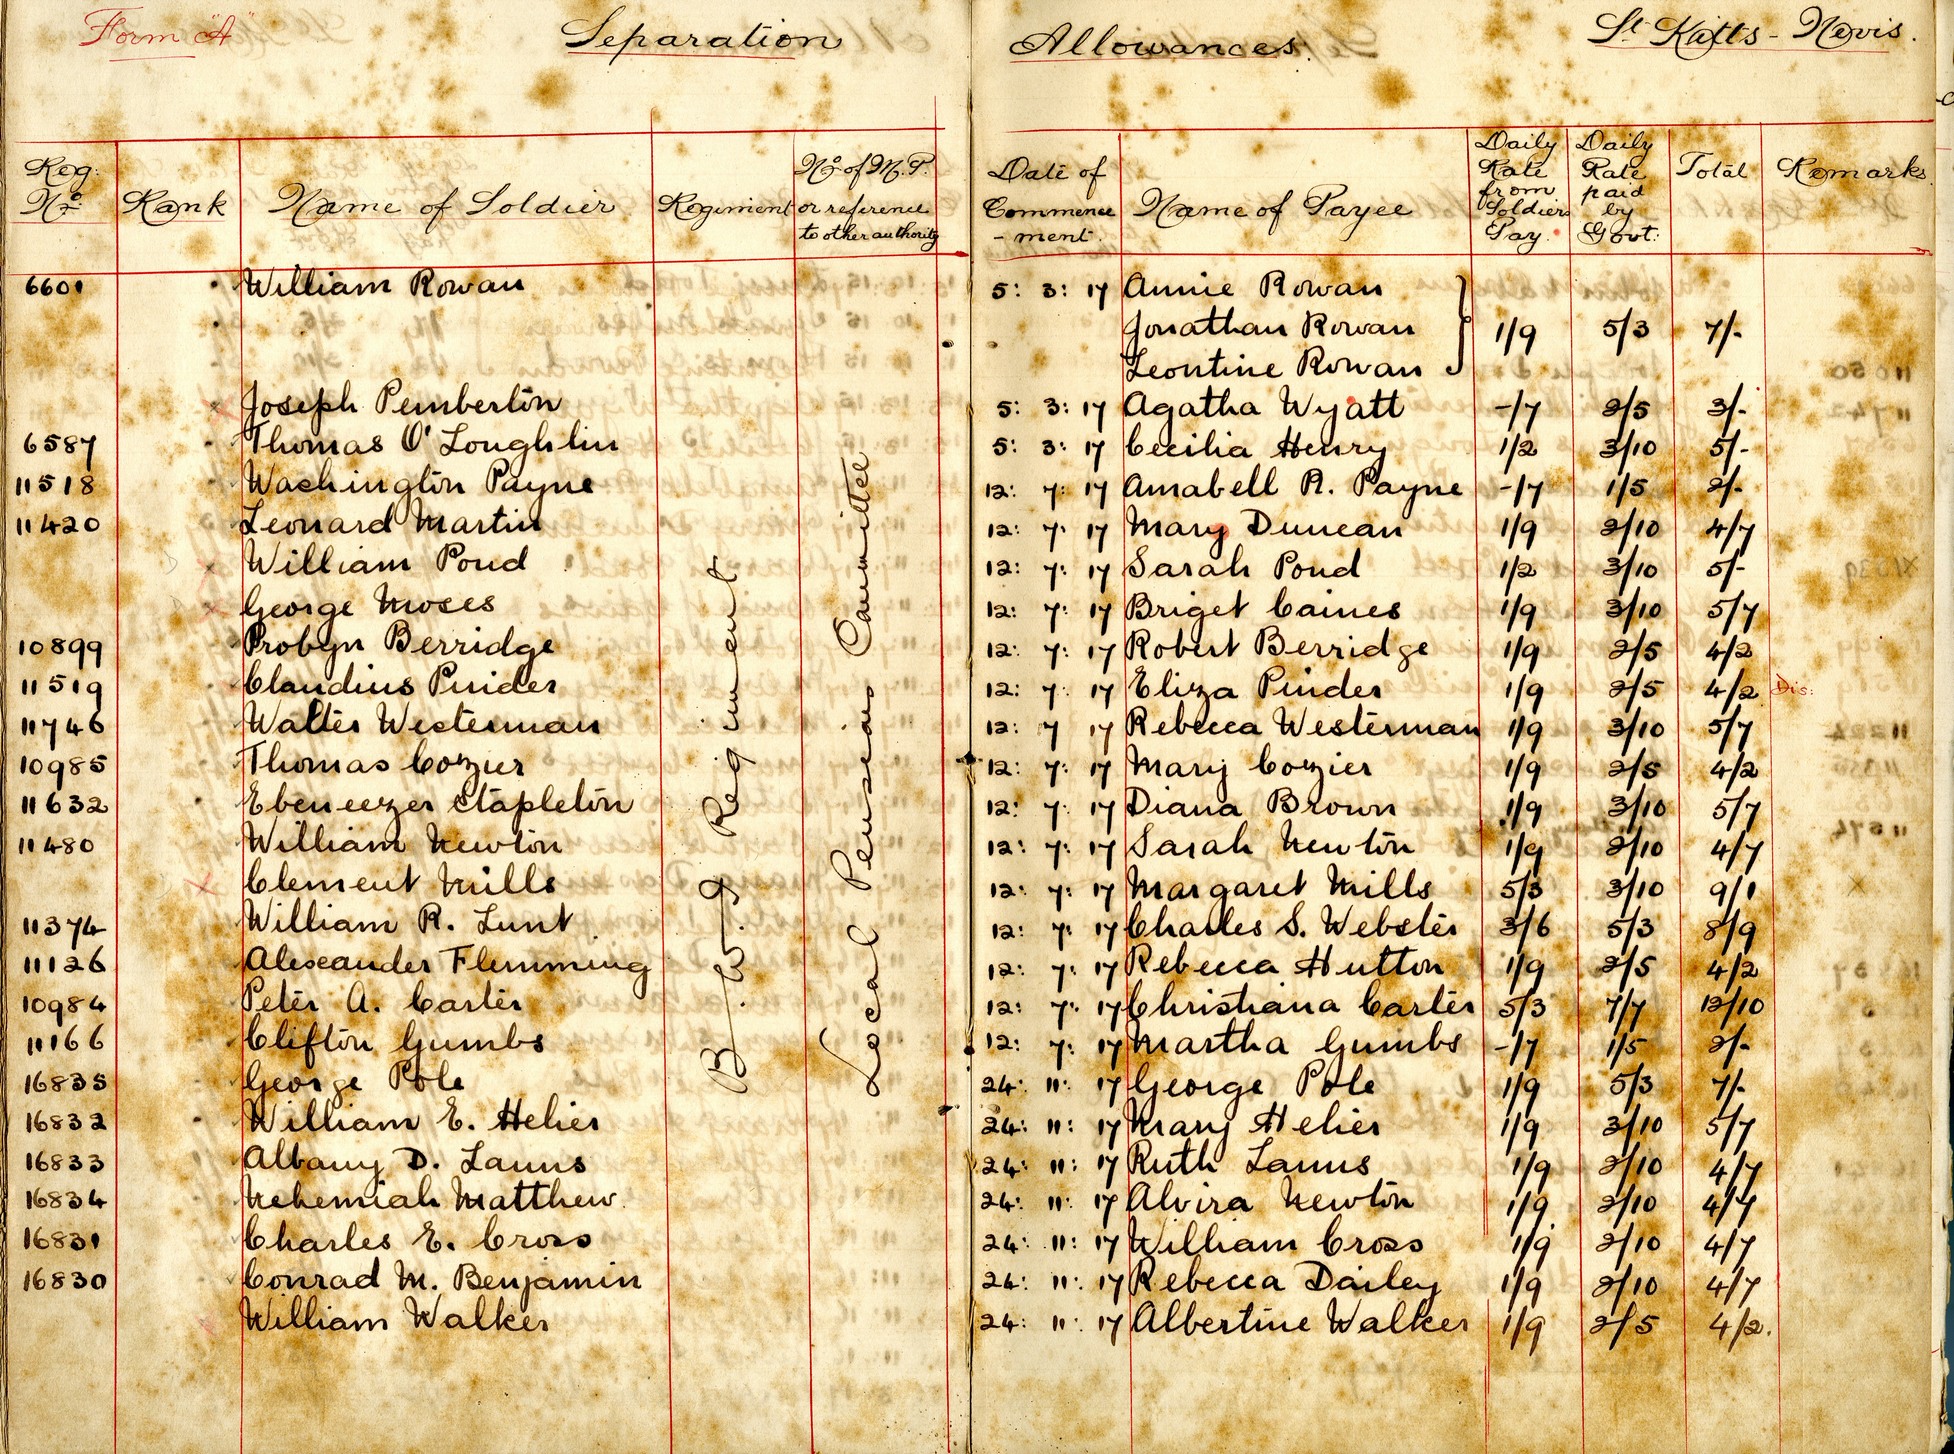 Form "A" Separation Allowances. St Kitts - Nevis.
Reg: No. Rank Name of Soldier Regiment No. of M.P. or reference to other authority Date of Commence-ment. Name of Payee Daily Rate from Soldiers Pay. Daily Rate paid by Govt: Total Remarks
6601 William Rowan 5: 3: 17 Annie Rowan
Jonathan Rowan 1/9 5/3 7/-
Leontine Rowan
Joseph Pemberton 5: 3: 17 Agatha Wyatt -/7 2/5 3/-
6587 Thomas O'Loughlin 5: 3: 17 Cecilia Henry 1/2 3/10 5/-
11518 Washington Payne 12: 7: 17 Amabell R. Payne -/7 1/5 2/-
11420 Leonard Martin 12: 7: 17 Mary Duncan 1/9 2/10 4/7
William Pond 12: 7: 17 Sarah Pond 1/2 3/10 5/-
George Moses 12: 7: 17 Briget Caines 1/9 3/10 5/7
10899 Probyn Berridge 12: 7: 17 Robert Berridge 1/9 2/5 4/2
11519 Claudius Pinder 12: 7: 17 Eliza Pinder 1/9 2/5 4/2 Dis:
11746 Walter Westerman 12: 7 17 Rebecca Westerman 1/9 3/10 5/7
10985 Thomas Cozier 12: 7: 17 Mary Cozier 1/9 2/5 4/2
11632 Ebeneezer Stapleton 12: 7: 17 Diana Brown 1/9 3/10 5/7
11480 William Newton 12: 7: 17 Sarah Newton 1/9 2/10 4/7
Clement Mills 12: 7: 17 Margaret Mills 5/3 3/10 9/1
11374 William R. Lunt 12: 7: 17 Charles S. Webster 3/6 5/3 8/9
11126 Alexander Flemming 12: 7: 17 Rebecca Hutton 1/9 2/5 4/2
10984 Peter A. Carter 12: 7: 17 Christiana Carter 5/3 7/7 12/10
11166 Clifton Gumbs 12: 7: 17 Martha Gumbs -/7 1/5 2/-
16835 George Pole 24: 11: 17 George Pole 1/9 5/3 7/-
16832 William E. Helier 24: 11: 17 Mary Helier 1/9 3/10 5/7
16833 Albany D. Lanns 24: 11: 17 Ruth Lanns 1/9 2/10 4/7
16834 Nehemiah Matthew. 24: 11: 17 Alvira Newton 1/9 2/10 4/7
16831 Charles E. Cross 24: 11: 17 William Cross 1/9 2/10 4/7
16830 Conrad M. Benjamin 24: 11: 17 Rebecca Dailey 1/9 2/10 4/7
William Walker 24: 11: 17 Albertine Walker 1/9 2/5 4/2.
B.W.I. Regiment
Local Pension Committee